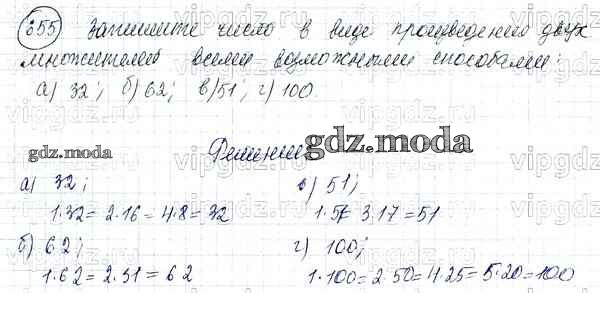 655 Запишите число в виде произведения двух
множителей всеми возможными способами:
а) 32; б) 62; в) 51; г) 100
gdz.moda
Решение
gdz.moda
а) 32;
1·32 = 2·16 = 4·8 = 32
б) 62;
1·62 = 2·31 = 62
в) 51;
1·51 = 3·17 = 51
г) 100;
1·100 = 2·50 = 4·25 = 5·20 = 100